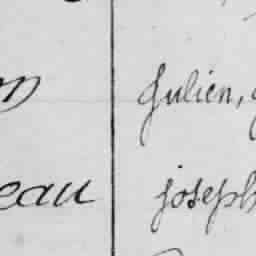 Julien,
eau joseph